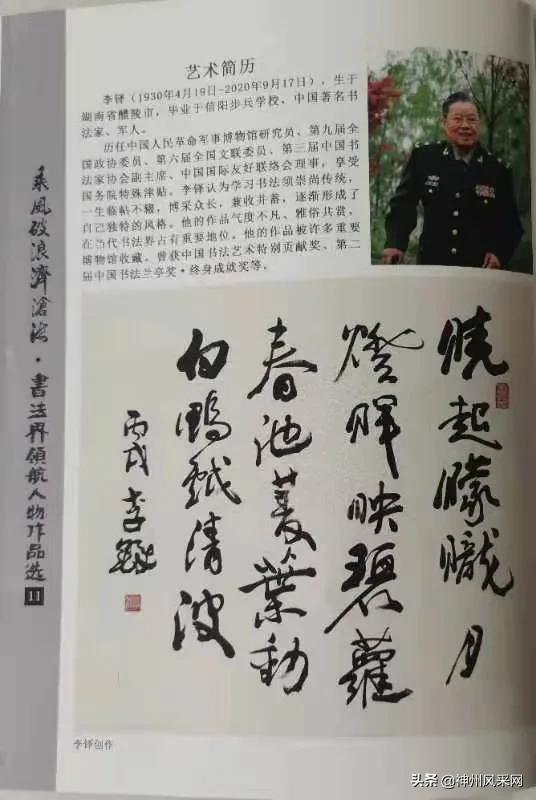 艺术简历
李铎(1930年4月19日-2020年9月17日),生于
湖南省醴陵市,毕业于信阳步兵学校,中国著名书
法家、军人。
历任中国人民革命军事博物馆研究员、第九届全
国政协委员、第六届全国文联委员、第三届中国书
法家协会副主席、中国国际友好联络会理事,享受
国务院特殊津贴。李铎认为学习书法须崇尚传统,
一生临帖不辍,博采众长,兼收并蓄,逐渐形成了
自己独特的风格。他的作品气度不凡、雅俗共赏,
在当代书法界占有重要地位。他的作品被许多重要
博物馆收藏。曾获中国书法艺术特别贡献奖、第二
届中国书法兰亭奖·终身成就奖等。
乘風破浪濟滄海·書法界領航人物作品选 11
曉起朦朧月
燈暉映碧蘿
春池菱葉動
白鴨戲清波
丙戌李鐸
李铎创作
头条 @神州风采网